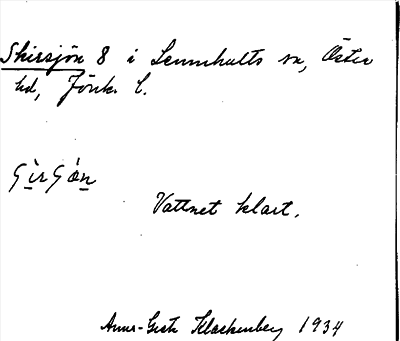 Skirsjön 8 i Lemnhults sn, Öster
hd, Jönk. l.
Vattnet klart.
Anna-Greta Klackenberg 1934